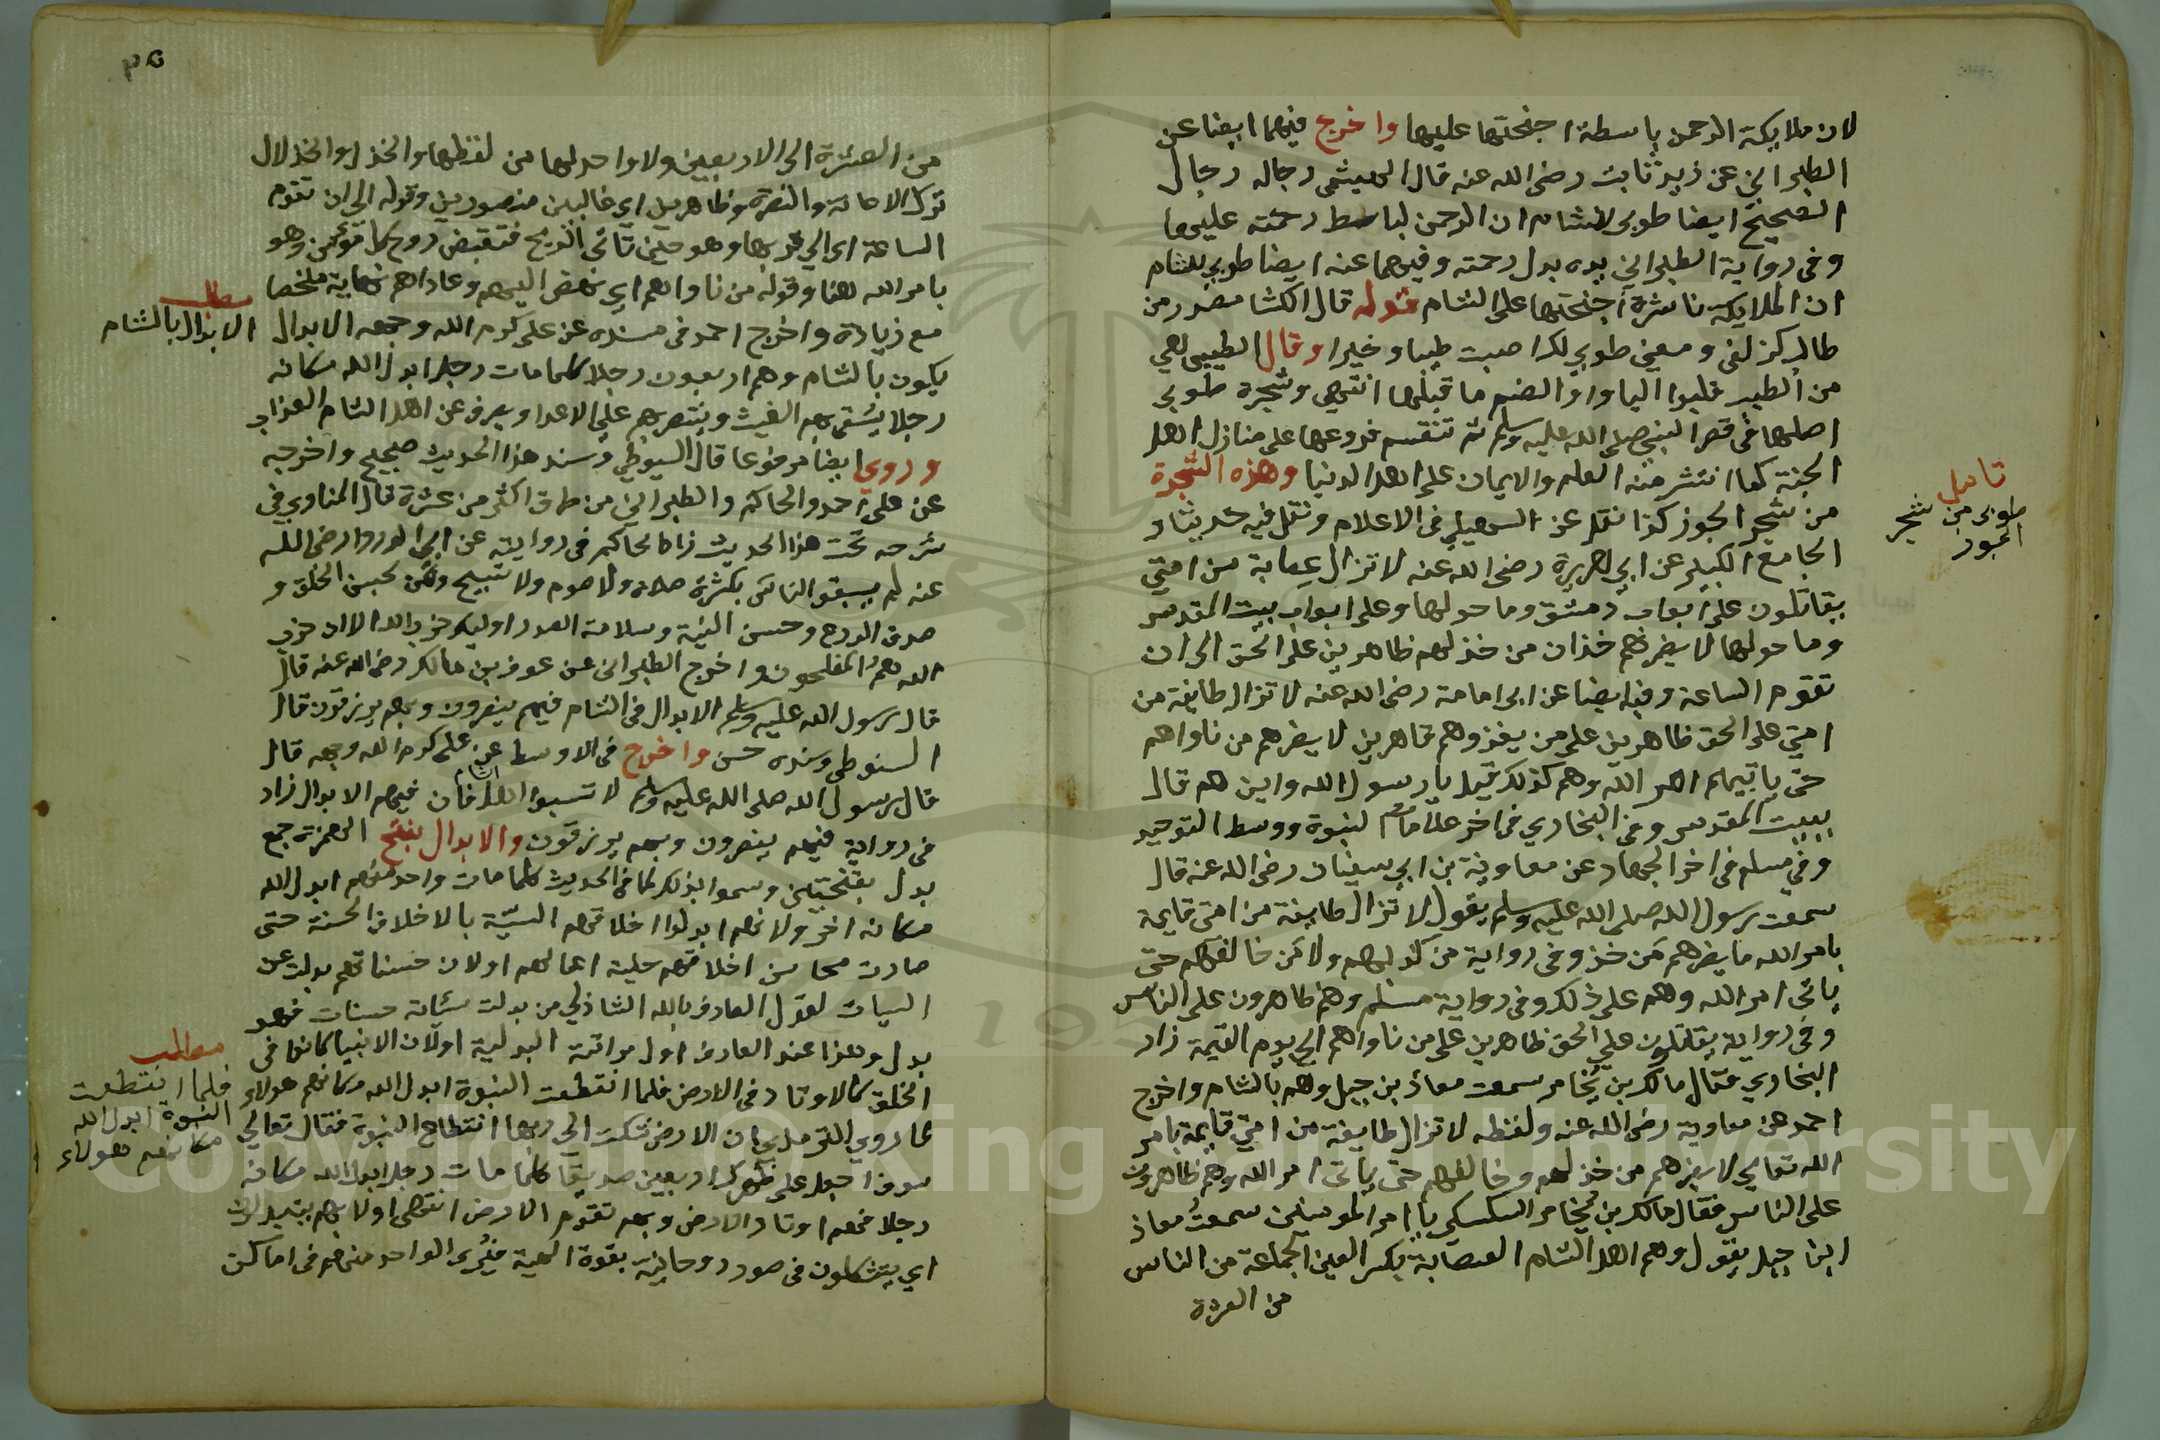 لان ملايكة الرحمن باسطة اجنحتها عليها واخرج فيهما ايضا عن
الطبراني عن زيد ثابت رضى الله عنه قال الهيثمى رجاله رجال
الصحيح ايضا طوبى للشام ان الرحمن لباسط رحمته عليها
وفى رواية الطبراني يده بدل رحمته وفيهما عنه ايضا طوبى للشام
ان الملايكة ناشرة اجنحتها على الشام قوله قال الكشا مصدر من
طاب كزلفى ومعنى طوبى لك اصبت طيبا وخيرا وقال الطيبى هي
من الطيب قلبوا اليا واوا لضم ما قبلها انتهى وشجرة طوبى
اصلها فى قصر النبي صلى الله عليه وسلم ثم تنقسم فروعها على منازل اهل
الجنة كما انتشر منه العلم والايمان على اهل الدنيا وهذه الشجرة
من شجر الجوز كذا نقل عن السهيلي فى الاعلام ونقل فيه حديثا و
الجامع الكبير عن ابي هريرة رضى الله عنه لا تزال عصابة من امتي
يقاتلون على ابواب دمشق وما حولها وعلى ابواب بيت المقدس
وما حولها لا يضرهم خذلان من خذلهم ظاهرين على الحق الى ان
تقوم الساعة وفيه ايضا عن ابى امامة رضى الله عنه لا تزال طايفة من
امتي على الحق ظاهرين على من يغزوهم قاهرين لا يضرهم من ناواهم
حتى ياتيهم امر الله وهم كذلك قيل يا رسول الله واين هم قال
ببيت المقدس وفى البخاري فى اخر علامات النبوة ووسط التوحيد
وفي مسلم فى اخر الجهاد عن معاوية بن ابي سفيان رضى الله عنه قال
سمعت رسول الله صلى الله عليه وسلم يقول لا تزال طايفة من امتى قايمة
بامر الله ما يضرهم من خذ وفى رواية من كذبهم ولا من خالفهم حتى
ياتى امر الله وهم على ذلك وفى رواية مسلم وهم ظاهرون على الناس
وفى رواية يقاتلون على الحق ظاهرين على من ناواهم الى يوم القيمة زاد
البخاري فقال مالك بن يخامر سمعت معاذ بن جبل وهم بالشام واخرج
احمد عن معاوية رضى الله عنه ولفظه لا تزال طايفة من امتي قايمة بامر
الله تعالى لا يضرهم من خذلهم و خالفهم حتى ياتى امر الله وهم ظاهرون
على الناس فقال مالك بن يخامر السكسكي يا امر المومنين سمعت معاذ
ابن جبل يقول وهم اهل الشام العصابة بكسر العين الجماعة من الناس
من العشرة
تاصيل
طوبى من شجر
الجوز
٣٥
من العشرة الى الاربعين ولا واحد لها من لفظها والخذل والخذلال
ترك الاعانة والنصرة وظاهرين اي غالبين منصورين وقوله الى ان تقوم
الساعة اى الى قربها وهو حين تاتى الريح فتقبض روح كل مؤمن وهو
بامر الله هنا وقوله من ناواهم اي نهض اليهم وعاداهم نهاية ملخصا
مع زيادة واخرج احمد فى مسنده عن على كرم الله وجهه الابدال
يكون بالشام وهم اربعون رجلا كلما مات رجل ابدل الله مكانه
رجلا يسقى بهم الغيث وينتصر بهم على الاعدا ويصرف عن اهل الشام العذاب
وروي ايضا مرفوعا قال السيوطي وسند هذا الحديث صحيح واخرجه
عن على احمد والحاكم والطبراني من طرق اكثر من عشرة قال المناوى فى
شرحه تحت هذا الحديث زاد الحاكم فى روايته عن ابي الدردا رضى الله
عنه لم يسبقوا الناس بكثرة صلاة ولا صوم ولا تسبيح ولكن بحسن الخلق و
صدق الورع وحسن النية وسلامة الصدر اوليك حزب الله الا ان حزب
الله هم المفلحون واخرج الطبرانى عن عوف بن مالك رضى الله عنه قال
قال رسول الله عليه وسلم الابدال فى الشام فيهم ينصرون وبهم يرزقون قال
السيوطى وسنده حسن واخرج فى الاوسط عن على كرم الله وجهه قال
قال رسول الله صلى الله عليه وسلم لا تسبوا اهل الشام فان فيهم الابدال زاد
فى رواية فبهم ينصرون وبهم يرزقون والابدال بفتح الهمزة جمع
بدل بفتحتين وسموا بذلك لما فى الحديث كلما مات واحد منهم ابدل الله
مكانه اخر ولانهم ابدلوا اخلاقهم السيئة بالاخلاق الحسنة حتى
صارت محاسن اخلاقهم حلية اعمالهم او لان حسناتهم بدلت عن
السيات لقول العارف بالله الشاذلي من بدلت سيئاته حسنات فهو
بدل وهذا عند العارف اول مراتبة البدلية او لان الانبيا كانوا فى
الخلق كالاوتاد فى الارض فلما انقطعت النبوة ابدل الله مكانهم هولاء
لما روي الترمذي ان الارض شكت الى ربها انقطاع النبوة فقال تعالى
سوف اجعل على ظهرك اربعين صديقا كلما مات رجل ابدل الله مكانه
رجلا فهم اوتاد الارض وبهم تقوم الارض انتهى او لانهم يتبدلون
اي يتشكلون فى صور روحانية بقوة الهية فيُرى الواحد منهم فى اماكن
مطلب
الابدال بالشام
مطلب
فلما انقطعت
النبوة ابدل الله
مكانهم هولاء
Copyright © King Saud University